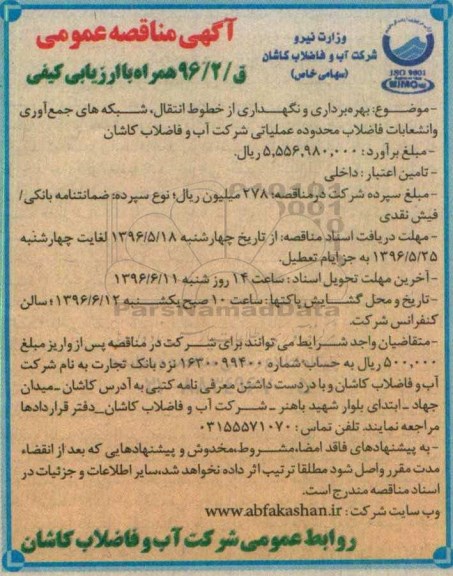 آگهی مناقصه عمومی
وزارت نیرو
شرکت آب و فاضلاب کاشان
(سهامی خاص)
ISO 9001
ق/۹۶/۲ همراه با ارزیابی کیفی
-موضوع: بهره‌برداری و نگهداری از خطوط انتقال، شبکه های جمع‌آوری
وانشعابات فاضلاب محدوده عملیاتی شرکت آب و فاضلاب کاشان
-مبلغ برآورد: ۵,۵۵۶,۹۸۰,۰۰۰ ریال.
-تامین اعتبار: داخلی
-مبلغ سپرده شرکت درمناقصه: ۲۷۸ میلیون ریال؛ نوع سپرده: ضمانتنامه بانکی/
فیش نقدی
-مهلت دریافت اسناد مناقصه: از تاریخ چهارشنبه ۱۳۹۶/۵/۱۸ لغایت چهارشنبه
۱۳۹۶/۵/۲۵ به جز ایام تعطیل.
-آخرین مهلت تحویل اسناد: ساعت ۱۴ روز شنبه ۱۳۹۶/۶/۱۱
-تاریخ و محل گشایش پاکتها: ساعت ۱۰ صبح یکشنبه ۱۳۹۶/۶/۱۲؛ سالن
کنفرانس شرکت.
-متقاضیان واجد شرایط می توانند برای شرکت در مناقصه پس از واریز مبلغ
۵۰۰,۰۰۰ ریال به حساب شماره ۱۶۳۰۰۹۹۴۰۰ نزد بانک تجارت به نام شرکت
آب و فاضلاب کاشان و با دردست داشتن معرفی نامه کتبی به آدرس کاشان -میدان
جهاد -ابتدای بلوار شهید باهنر -شرکت آب و فاضلاب کاشان_دفتر قراردادها
مراجعه نمایند. تلفن تماس: ۰۳۱۵۵۵۷۱۰۷۰
-به پیشنهادهای فاقد امضا،مشروط،مخدوش و پیشنهادهایی که بعد از انقضاء
مدت مقرر واصل شود مطلقا ترتیب اثر داده نخواهد شد،سایر اطلاعات و جزئیات در
اسناد مناقصه مندرج است.
وب سایت شرکت: www.abfakashan.ir
روابط عمومی شرکت آب و فاضلاب کاشان
ParsNamadData